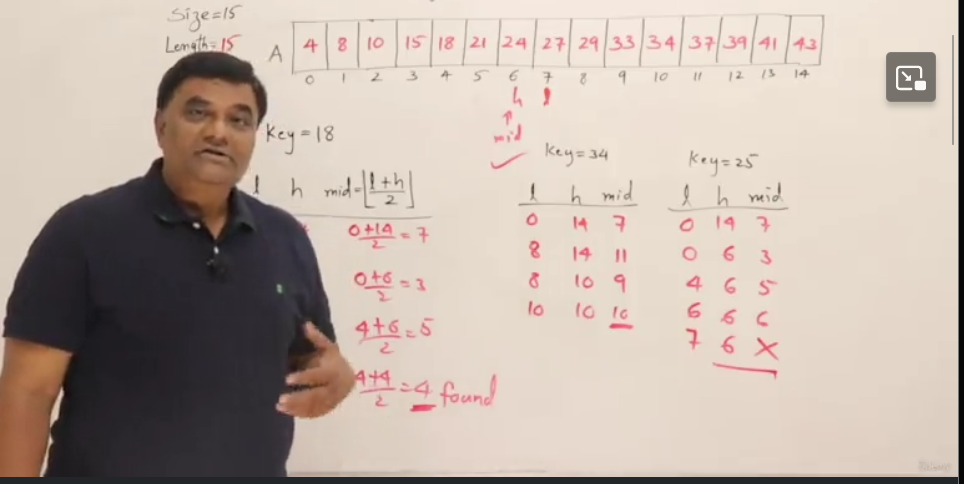 Size=15
Length=15
A 4 8 10 15 18 21 24 27 29 33 34 37 39 41 43
0 1 2 3 4 5 6 7 8 9 10 11 12 13 14
h l
mid
Key=18
Key=34
Key=25
l h mid=⌊l+h/2⌋
0+14/2=7
0+6/2=3
4+6/2=5
4+4/2=4 found
l h mid
0 14 7
8 14 11
8 10 9
10 10 10
l h mid
0 14 7
0 6 3
4 6 5
6 6 6
7 6 X